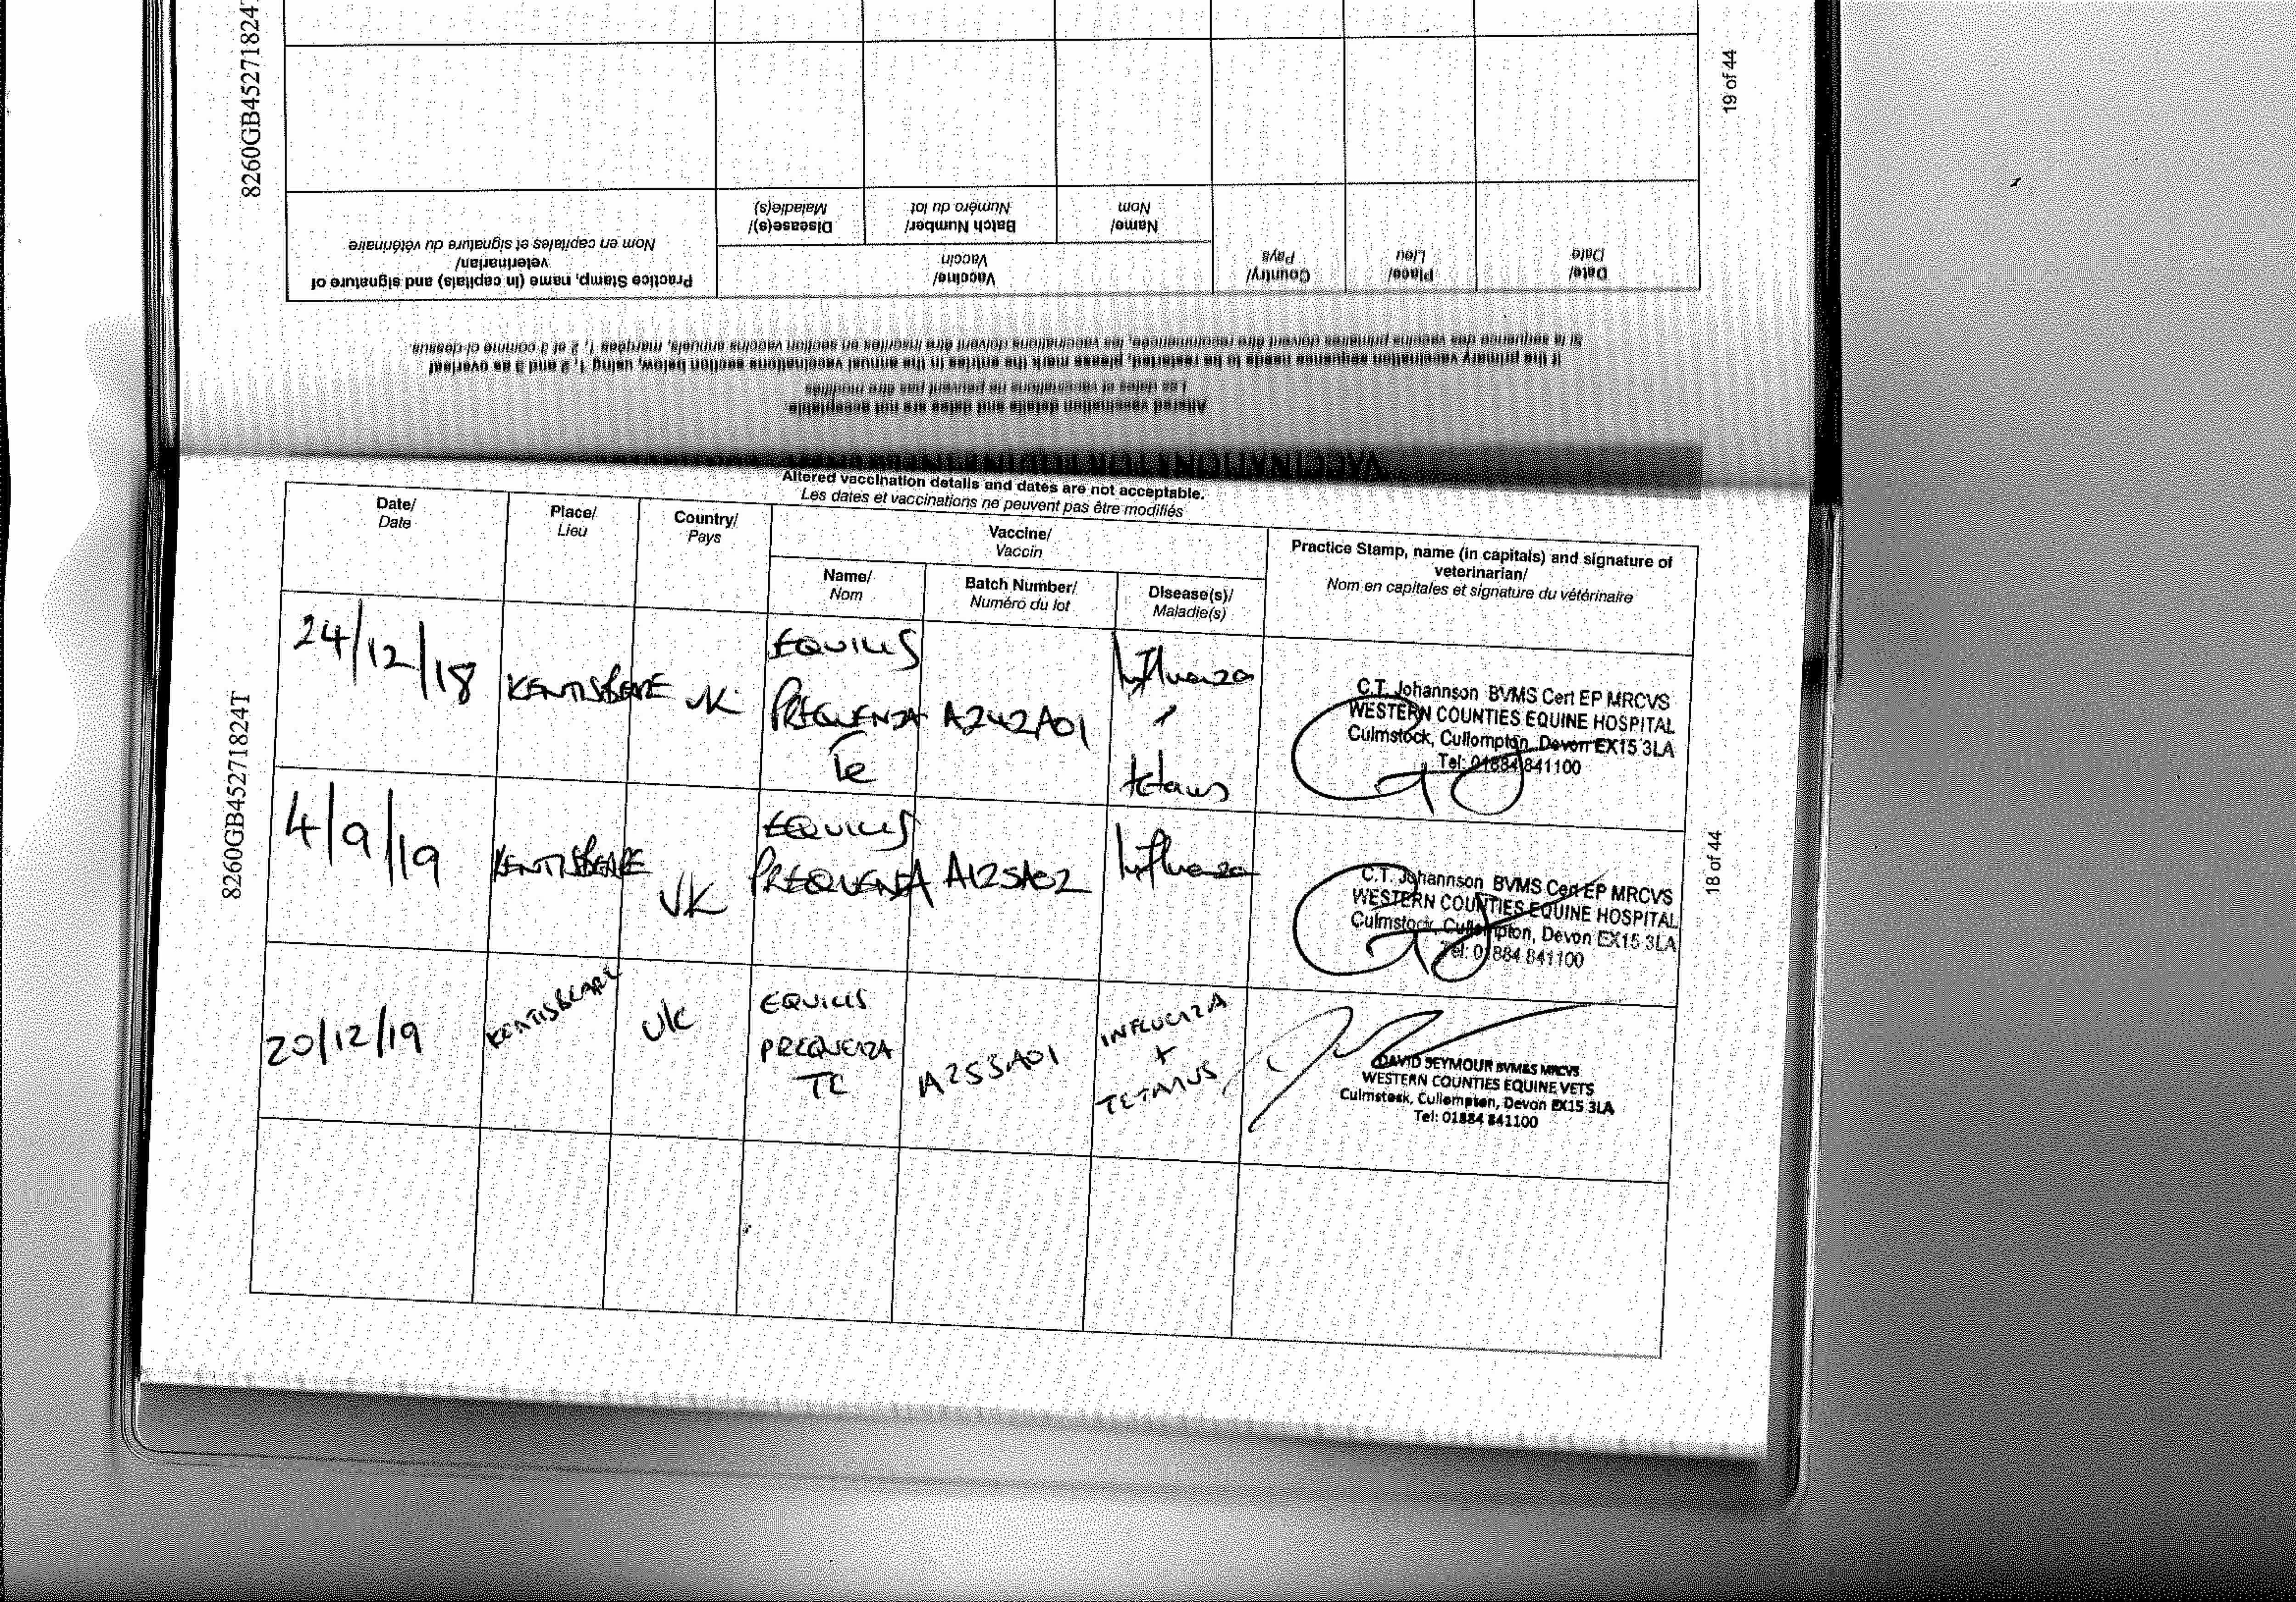 8260GB45271824T
19 of 44
Date/
Date
Place/
Lieu
Country/
Pays
Vaccine/
Vaccin
Name/
Nom
Batch Number/
Numéro du lot
Disease(s)/
Maladie(s)
Practice Stamp, name (in capitals) and signature of
veterinarian/
Nom en capitales et signature du vétérinaire
Altered vaccination details and dates are not acceptable.
Les dates et vaccinations ne peuvent pas être modifiés
If the primary vaccination sequence needs to be restarted, please mark the entries in the annual vaccinations section below, using 1, 2 and 3 as overleaf
Si la séquence des vaccins primaires doivent être recommencée, les vaccinations doivent être inscrites en section vaccins annuels, marquées 1, 2 et 3 comme ci-dessus.
Altered vaccination details and dates are not acceptable.
Les dates et vaccinations ne peuvent pas être modifiés
Date/
Date
Place/
Lieu
Country/
Pays
Vaccine/
Vaccin
Name/
Nom
Batch Number/
Numéro du lot
Disease(s)/
Maladie(s)
Practice Stamp, name (in capitals) and signature of
veterinarian/
Nom en capitales et signature du vétérinaire
24/12/18
KENTISBEARE
UK
EQUILIS
PREQUENZA
Te
A242A01
Influenza
/
tetanus
C.T. Johannson BVMS Cert EP MRCVS
WESTERN COUNTIES EQUINE HOSPITAL
Culmstock, Cullompton, Devon EX15 3LA
Tel: 01884 841100
4/9/19
KENTISBEARE
UK
EQUILIS
PREQUENZA
A125A02
Influenza
C.T. Johannson BVMS Cert EP MRCVS
WESTERN COUNTIES EQUINE HOSPITAL
Culmstock, Cullompton, Devon EX15 3LA
Tel: 01884 841100
20/12/19
KENTISBEARE
UK
EQUILIS
PREQUENZA
TE
A255A01
INFLUENZA
+
TETANUS
DAVID SEYMOUR BVM&S MRCVS
WESTERN COUNTIES EQUINE VETS
Culmstock, Cullompton, Devon EX15 3LA
Tel: 01884 841100
8260GB45271824T
18 of 44